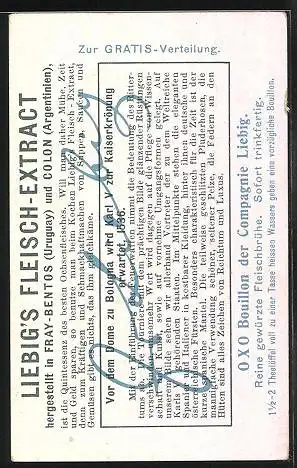 Zur GRATIS-Verteilung.
LIEBIG'S FLEISCH-EXTRACT
hergestellt in FRAY-BENTOS (Uruguay) und COLON (Argentinien),
ist die Quintessenz des besten Ochsenfleisches. Will man daher Mühe, Zeit
und Geld sparen, so benutze man den allbeliebten Liebig's Fleisch-Extract,
denn zum Kräftigen und Schmackhaftmachen von Suppen, Saucen und
Gemüsen gibt es nichts, das ihm gleichkäme.
Vor dem Dome zu Bologna wird Karl V. zur Kaiserkrönung
erwartet. 1530.
Mit der Einführung der Feuerwaffen nimmt die Bedeutung des Ritter-
tums ab, die Turniere mit dem prächtigen Bilde glänzender Rüstungen
verschwinden, umsomehr Wert wird dagegen auf die Pflege von Wissen-
schaft und Kunst, sowie auf vornehme Umgangsformen gelegt. Auf
unserem Bilde sehen wir allerhand Vertreter der zu dem Weltreiche
Karls V. gehörenden Staaten. Im Mittelpunkte stehen die eleganten
Spanier und Italiener in kostbarer Kleidung, hinter ihnen deutsche und
österreichische Fürsten. Besonders charakteristisch für die Zeit ist der
kurze spanische Mantel. Die teilweise geschlitzten Pluderhosen, die
mannigfache Verwendung schöner, seltener Pelze, die Federn an den
Hüten sind alles Zeichen von Reichtum und Luxus.
OXO Bouillon der Compagnie Liebig.
Reine gewürzte Fleischbrühe. Sofort trinkfertig.
1½-2 Theelöffel voll zu einer Tasse heissen Wassers geben eine vorzügliche Bouillon.